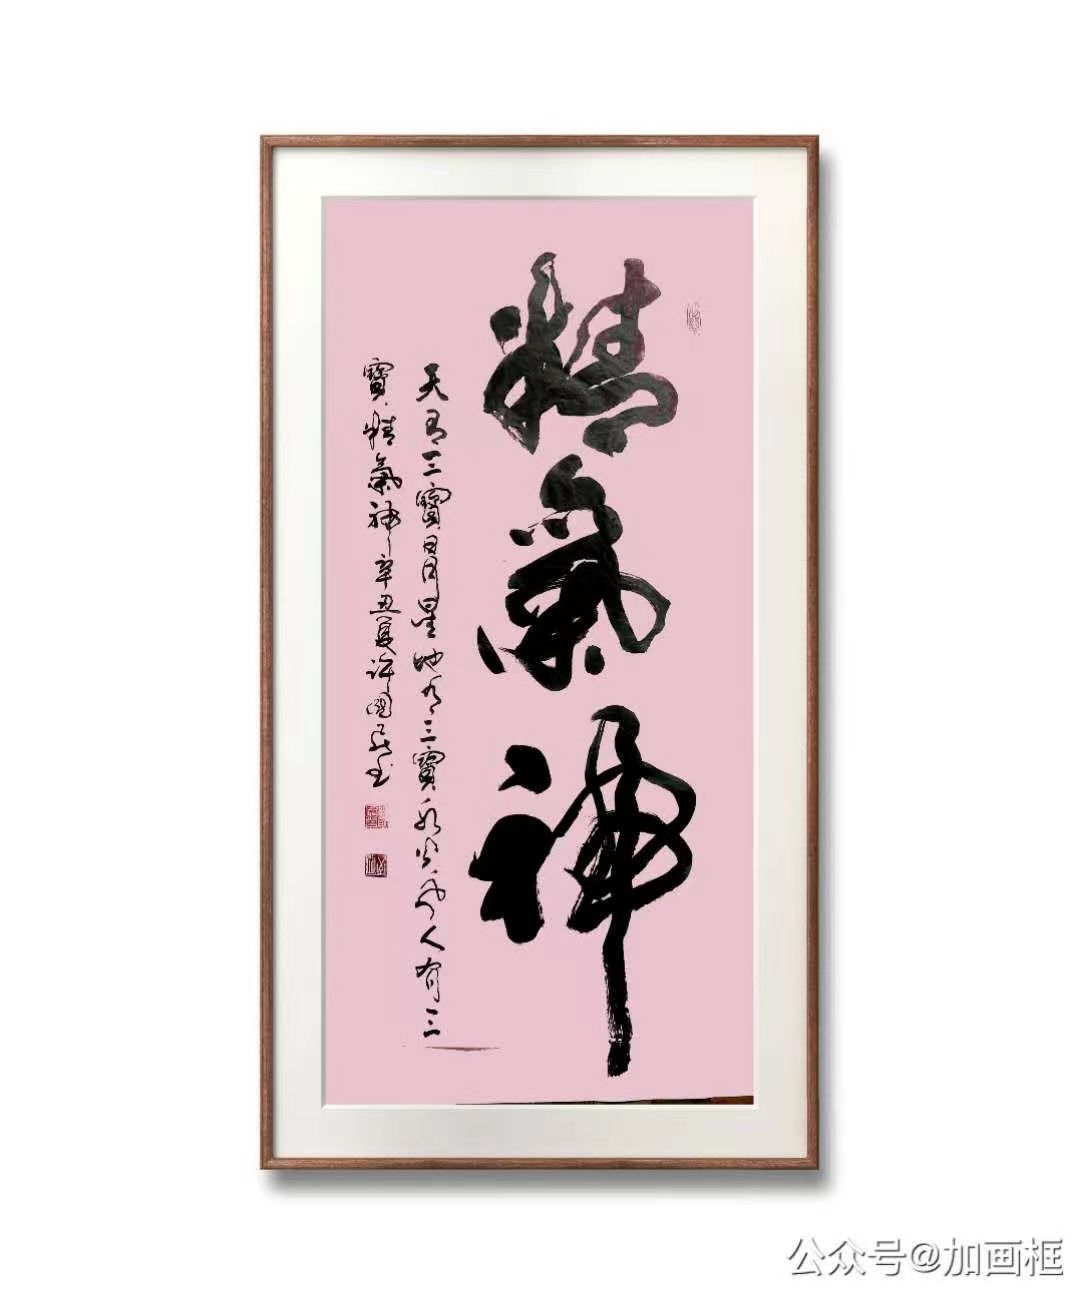 精氣神
天有三寶日月星地有三寶水火風人有三
寶精氣神辛丑夏許國兵书
公众号@加画框